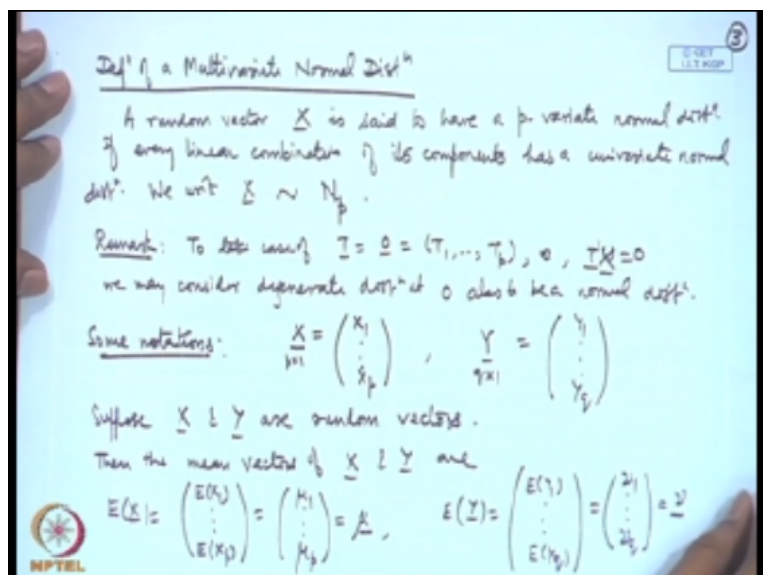 3
© CET
I.I.T. KGP
Defⁿ of a Multivariate Normal Distⁿ
A random vector X is said to have a p-variate normal distⁿ.
if every linear combination of its components has a univariate normal
distⁿ. We write X ~ N_p.
Remark: To take case of T = 0 = (T₁, ..., T_p), T'X = 0
we may consider degenerate distⁿ at 0 also to be a normal distⁿ.
Some notations: X p×1 = (X₁ ⋮ X_p), Y q×1 = (Y₁ ⋮ Y_q)
Suppose X & Y are random vectors.
Then the mean vectors of X & Y are
E(X) = (E(X₁) ⋮ E(X_p)) = (μ₁ ⋮ μ_p) = μ, E(Y) = (E(Y₁) ⋮ E(Y_q)) = (ν₁ ⋮ ν_q) = ν
NPTEL